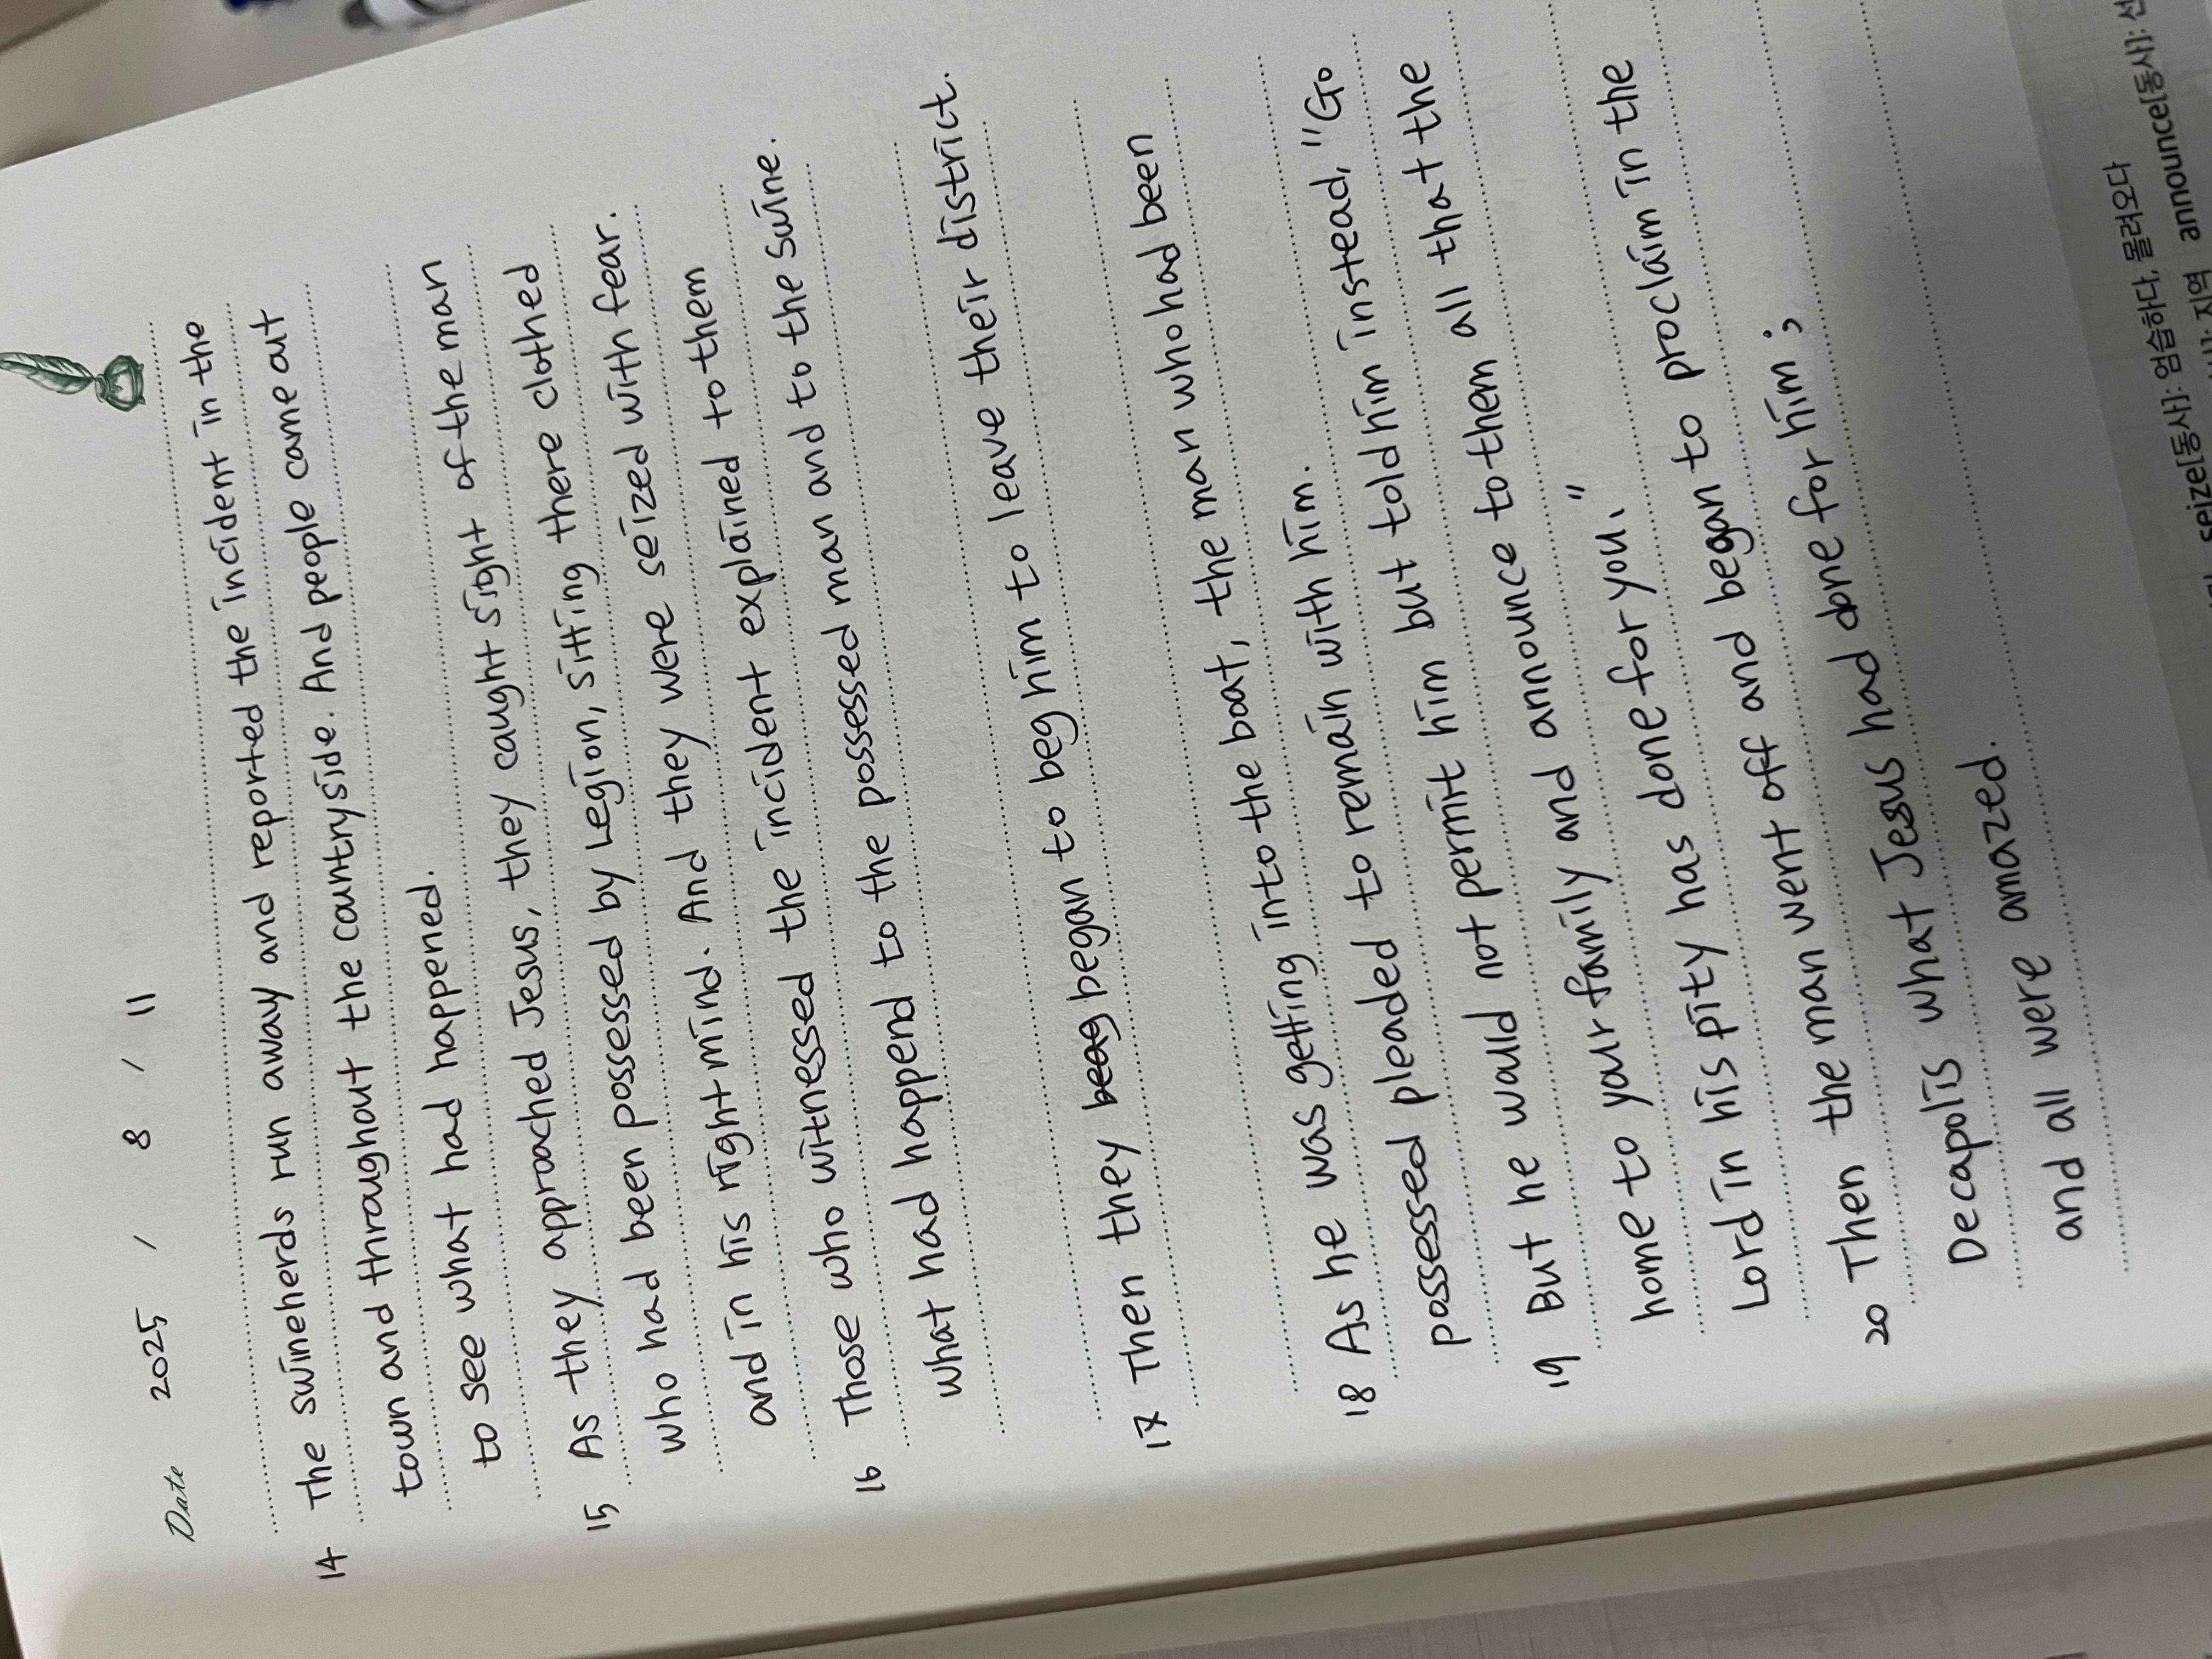 Date 2025 / 8 / 11
14 The swineherds run away and reported the incident in the
town and throughout the countryside. And people came out
to see what had happened.
15 As they approached Jesus, they caught sight of the man
who had been possessed by Legion, sitting there clothed
and in his right mind. And they were seized with fear.
16 Those who witnessed the incident explained to them
what had happend to the possessed man and to the swine.
17 Then they beag began to beg him to leave their district.
18 As he was getting into the boat, the man who had been
possessed pleaded to remain with him.
19 But he would not permit him but told him instead, "Go
home to your family and announce to them all that the
Lord in his pity has done for you."
20 Then the man went off and began to proclaim in the
Decapolis what Jesus had done for him;
and all were amazed.
seize[동사]: 엄습하다, 몰려오다
지역 announce[동사]: 선